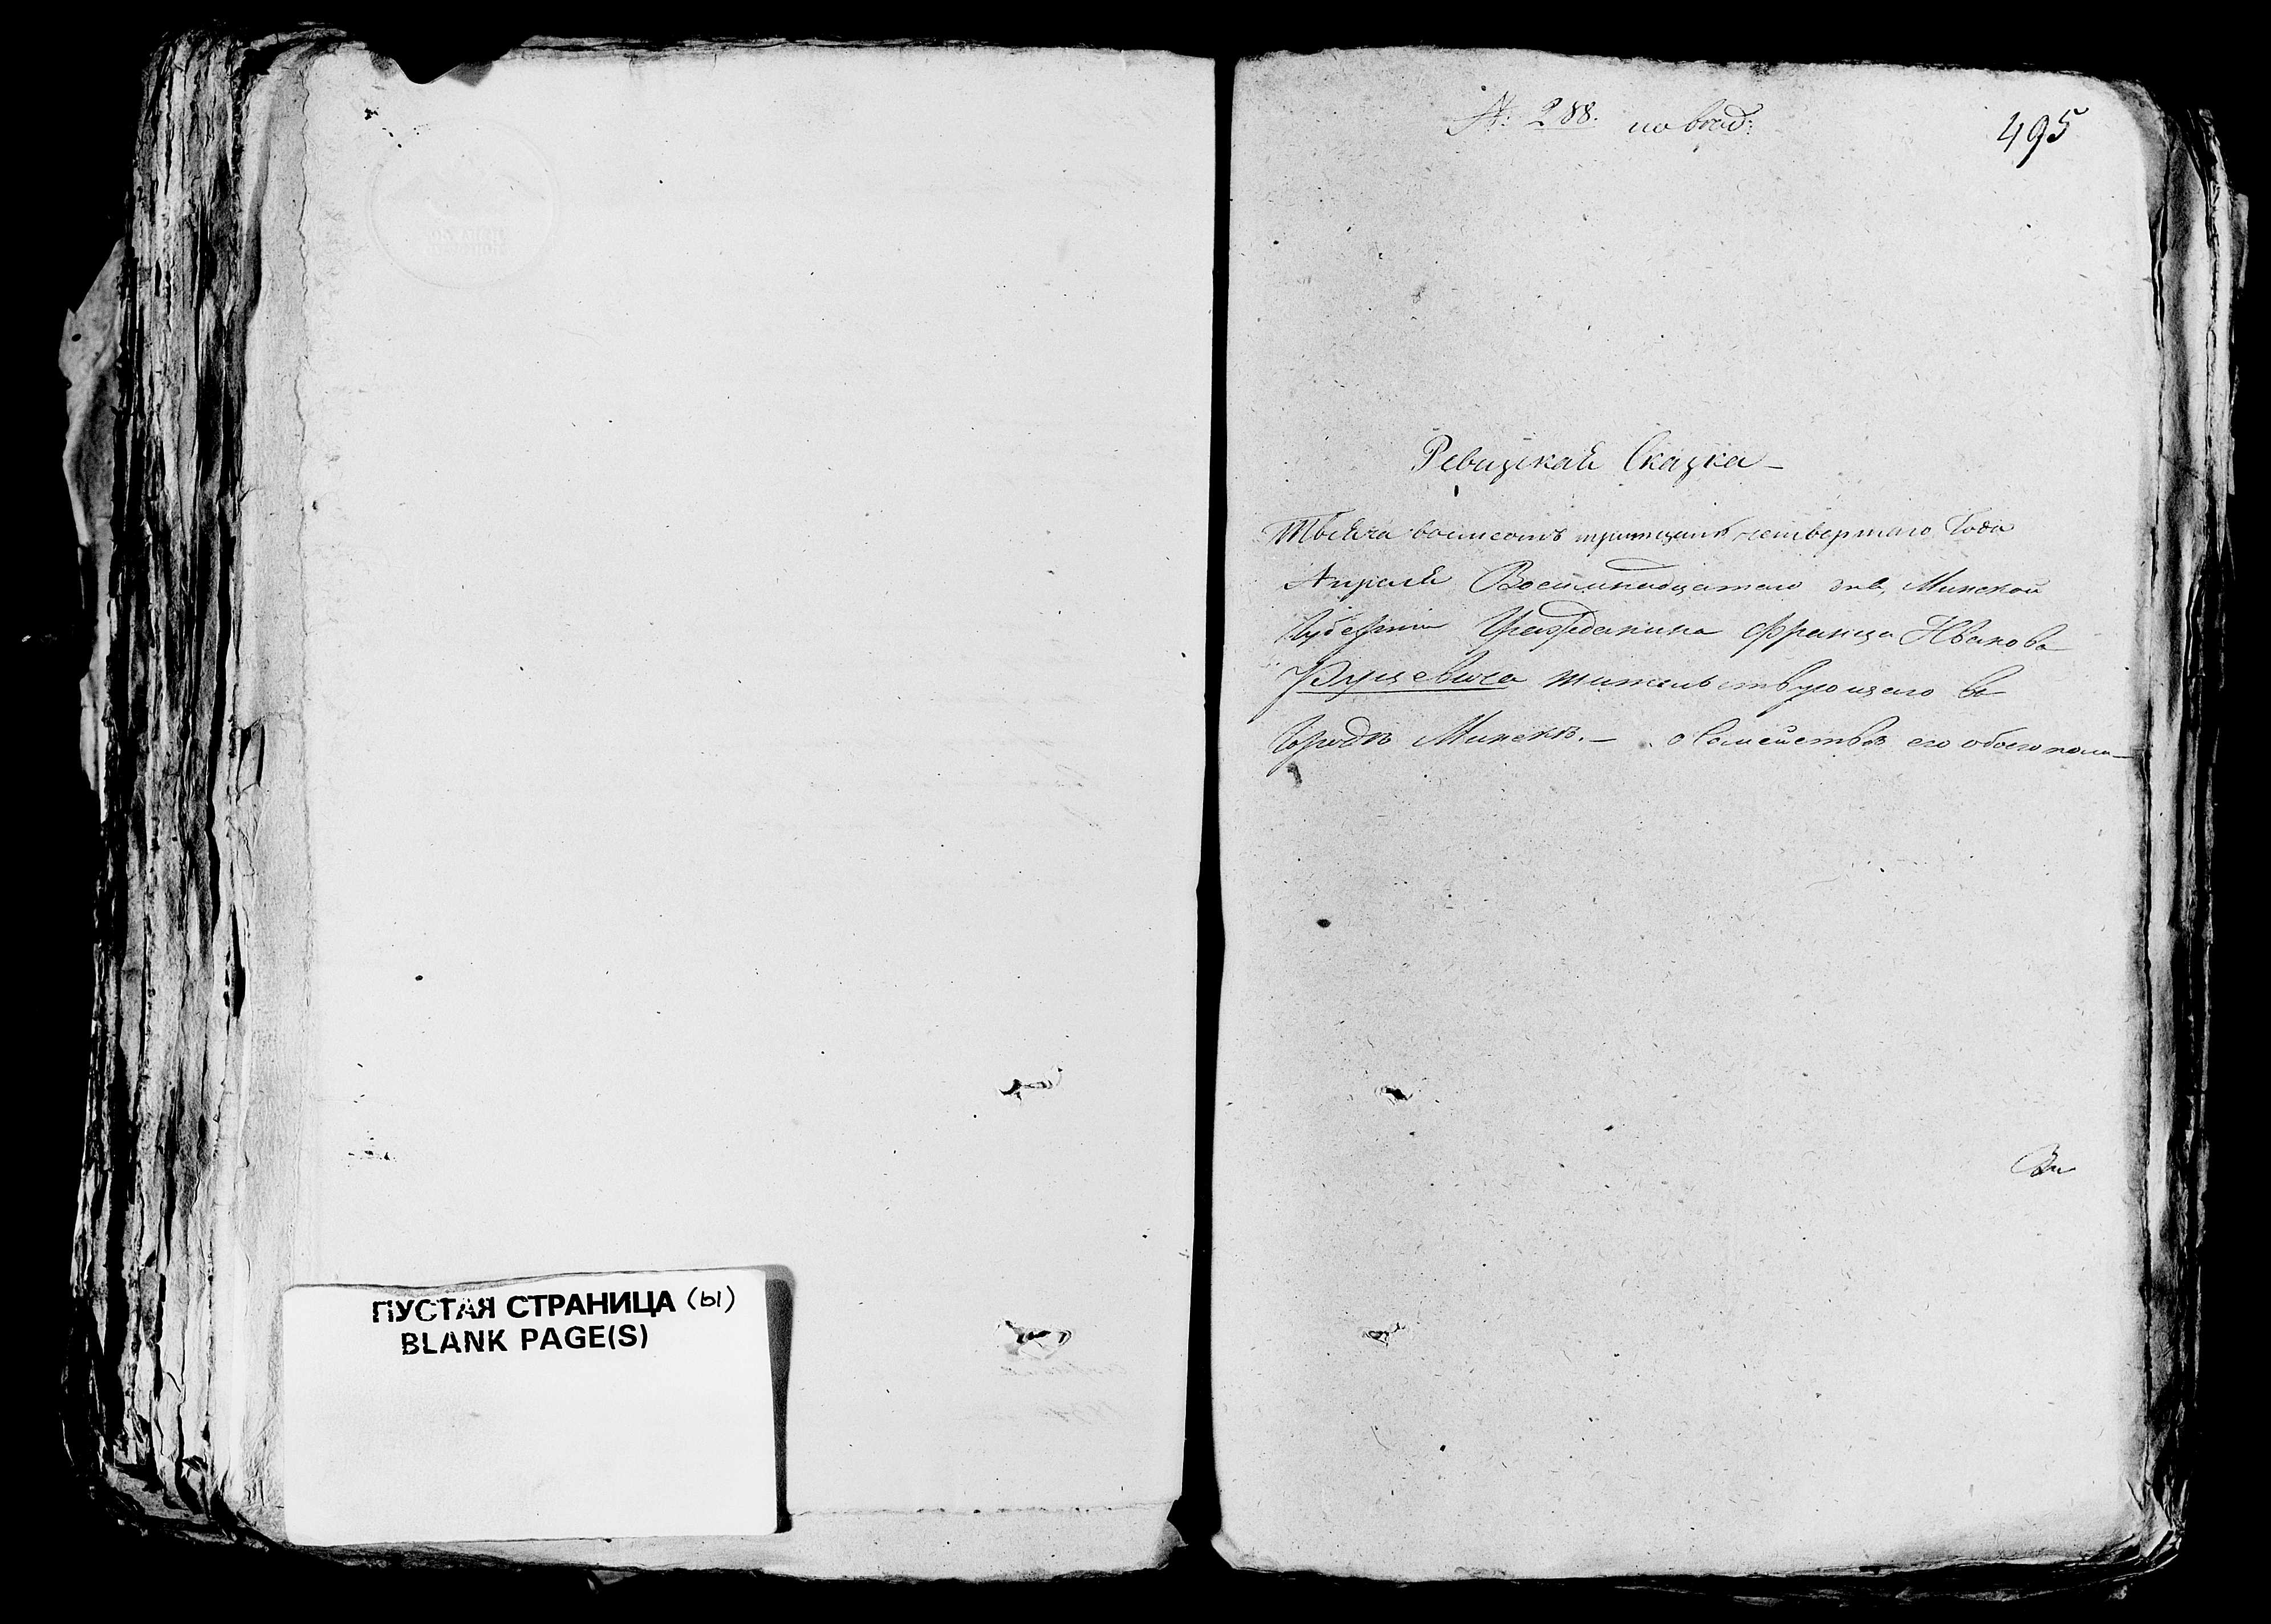 №: 288. по вход:
495
Ревизская Сказка
Тысяча восмсотъ тритцать четвертаго Года
Апреля Восемнадцатого дня, Минской
Губернии Гражданина Франца Иванова
жительствующего въ
Городѣ Минскѣ. – о Семействѣ его обоего пола
ПУСТАЯ СТРАНИЦА (ы)
BLANK PAGE(S)